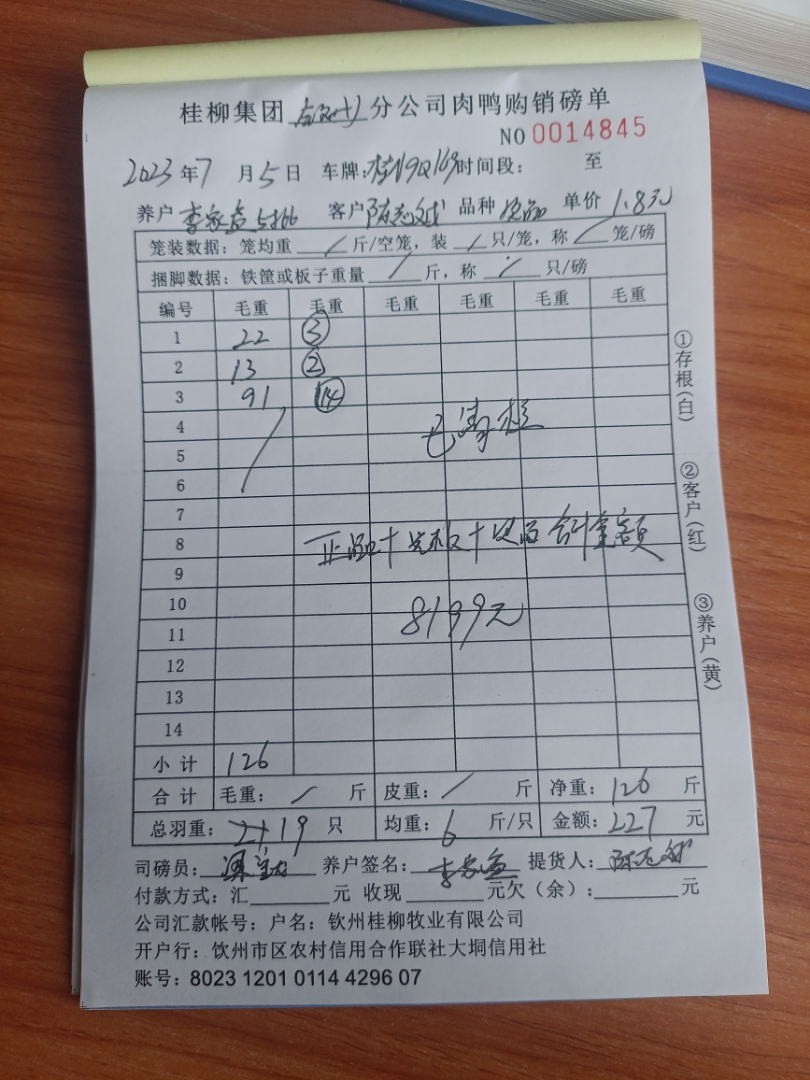 桂柳集团 分公司肉鸭购销磅单
NO 0014845
2023年7月5日 车牌: 时间段: 至
养户 客户 品种 单价 1.8元
笼装数据:笼均重 / 斤/空笼,装 / 只/笼,称 / 笼/磅
捆脚数据:铁筐或板子重量 / 斤,称 / 只/磅
编号 毛重 毛重 毛重 毛重 毛重 毛重
1 22 ③
2 13 ②
3 91 ⑭
4
5
6
7
8 正品+ + 合计金额
9
10 8199元
11
12
13
14
小计 126
合计 毛重: / 斤 皮重: / 斤 净重: 126 斤
总羽重: 19 只 均重: 6 斤/只 金额: 227 元
司磅员: 养户签名: 提货人:
付款方式:汇 元 收现 元欠(余): 元
公司汇款帐号:户名:钦州桂柳牧业有限公司
开户行:钦州市区农村信用合作联社大垌信用社
账号:8023 1201 0114 4296 07
①存根(白)
②客户(红)
③养户(黄)